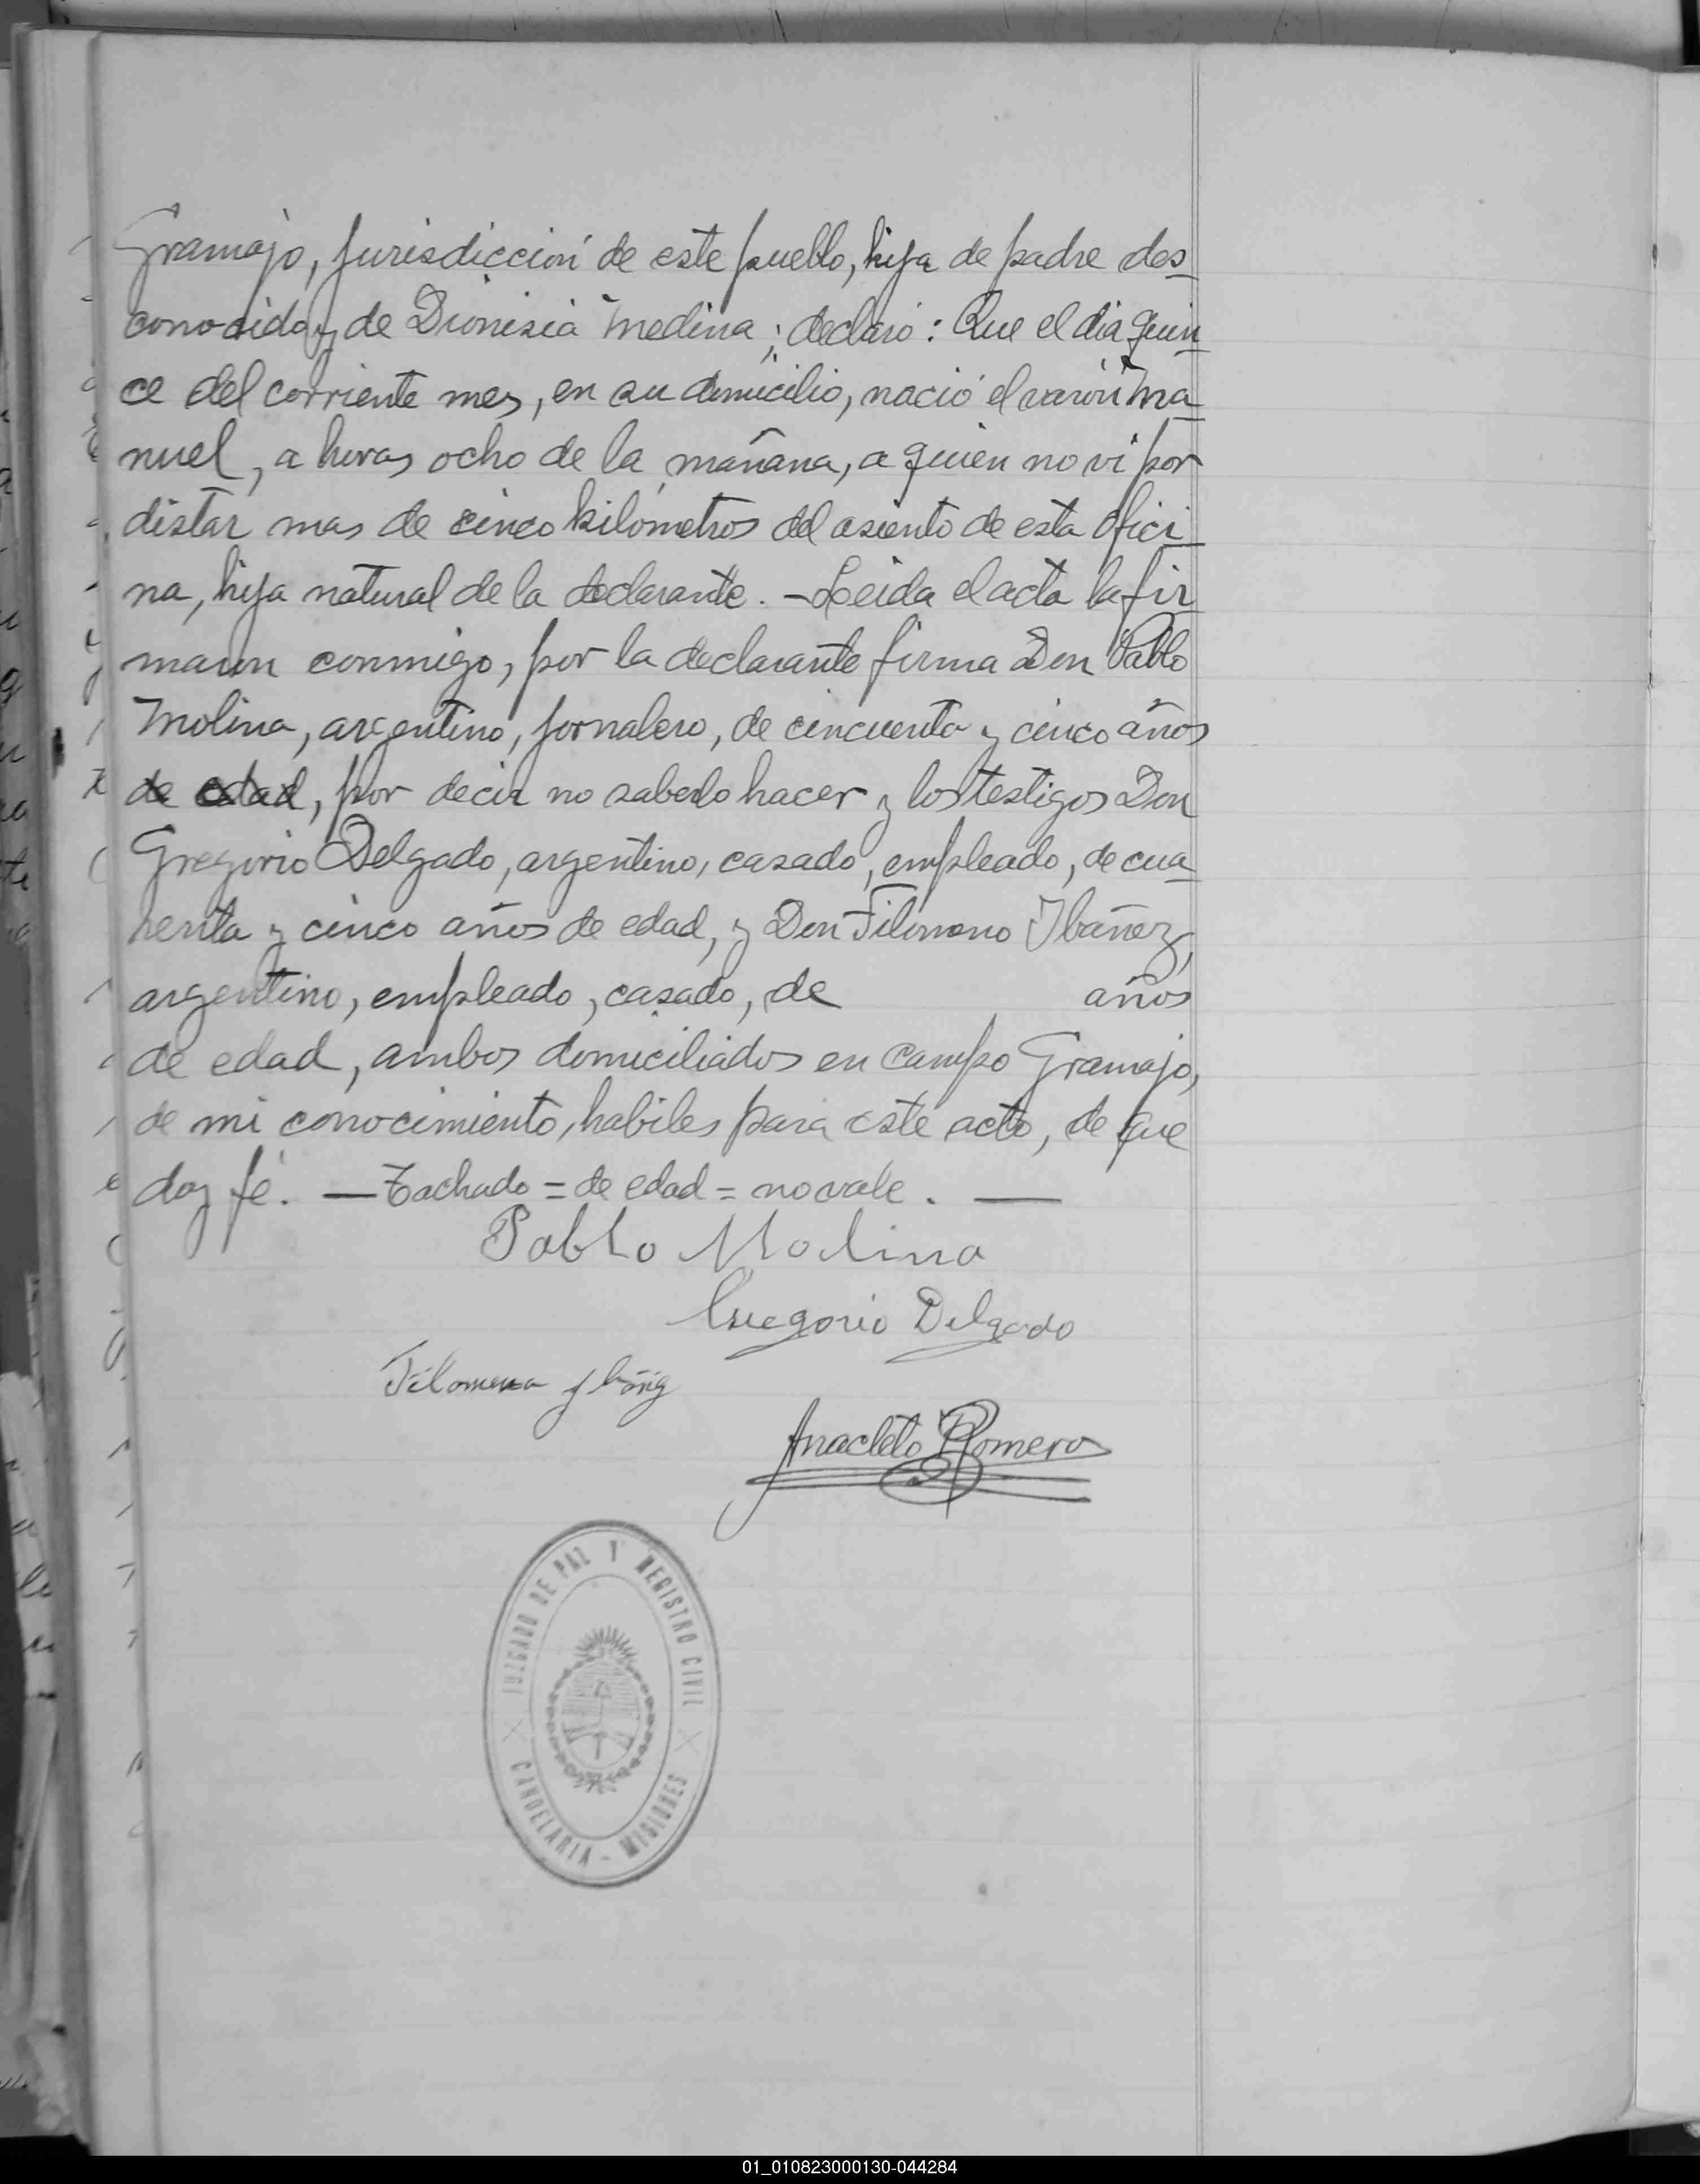 Gramajo, jurisdicción de este pueblo, hija de padre des
conocido y de Dionisia Medina; declaró: Que el dia quin
ce del corriente mes, en su domicilio, nació el varón Ma
nuel, a horas ocho de la mañana, a quien no vi por
distar mas de cinco kilómetros del asiento de esta Ofici
na, hija natural de la declarante. - Leida el acta la fir
maron conmigo, por la declarante firma Don Pablo
Molina, argentino, jornalero, de cincuenta y cinco años
de edad, por decir no saberlo hacer y los testigos Don
Gregorio Delgado, argentino, casado, empleado, de cua
renta y cinco años de edad, y Don Filomeno Ibañez,
argentino, empleado, casado, de años
de edad, ambos domiciliados en Campo Gramajo,
de mi conocimiento, habiles para este acto, de que
doy fé. — Tachado = de edad = no vale. —
Pablo Molina
Gregorio Delgado
Filomena
Anacleto Romero
JUZGADO DE PAZ Y REGISTRO CIVIL
CANDELARIA - MISIONES
01_010823000130-044284